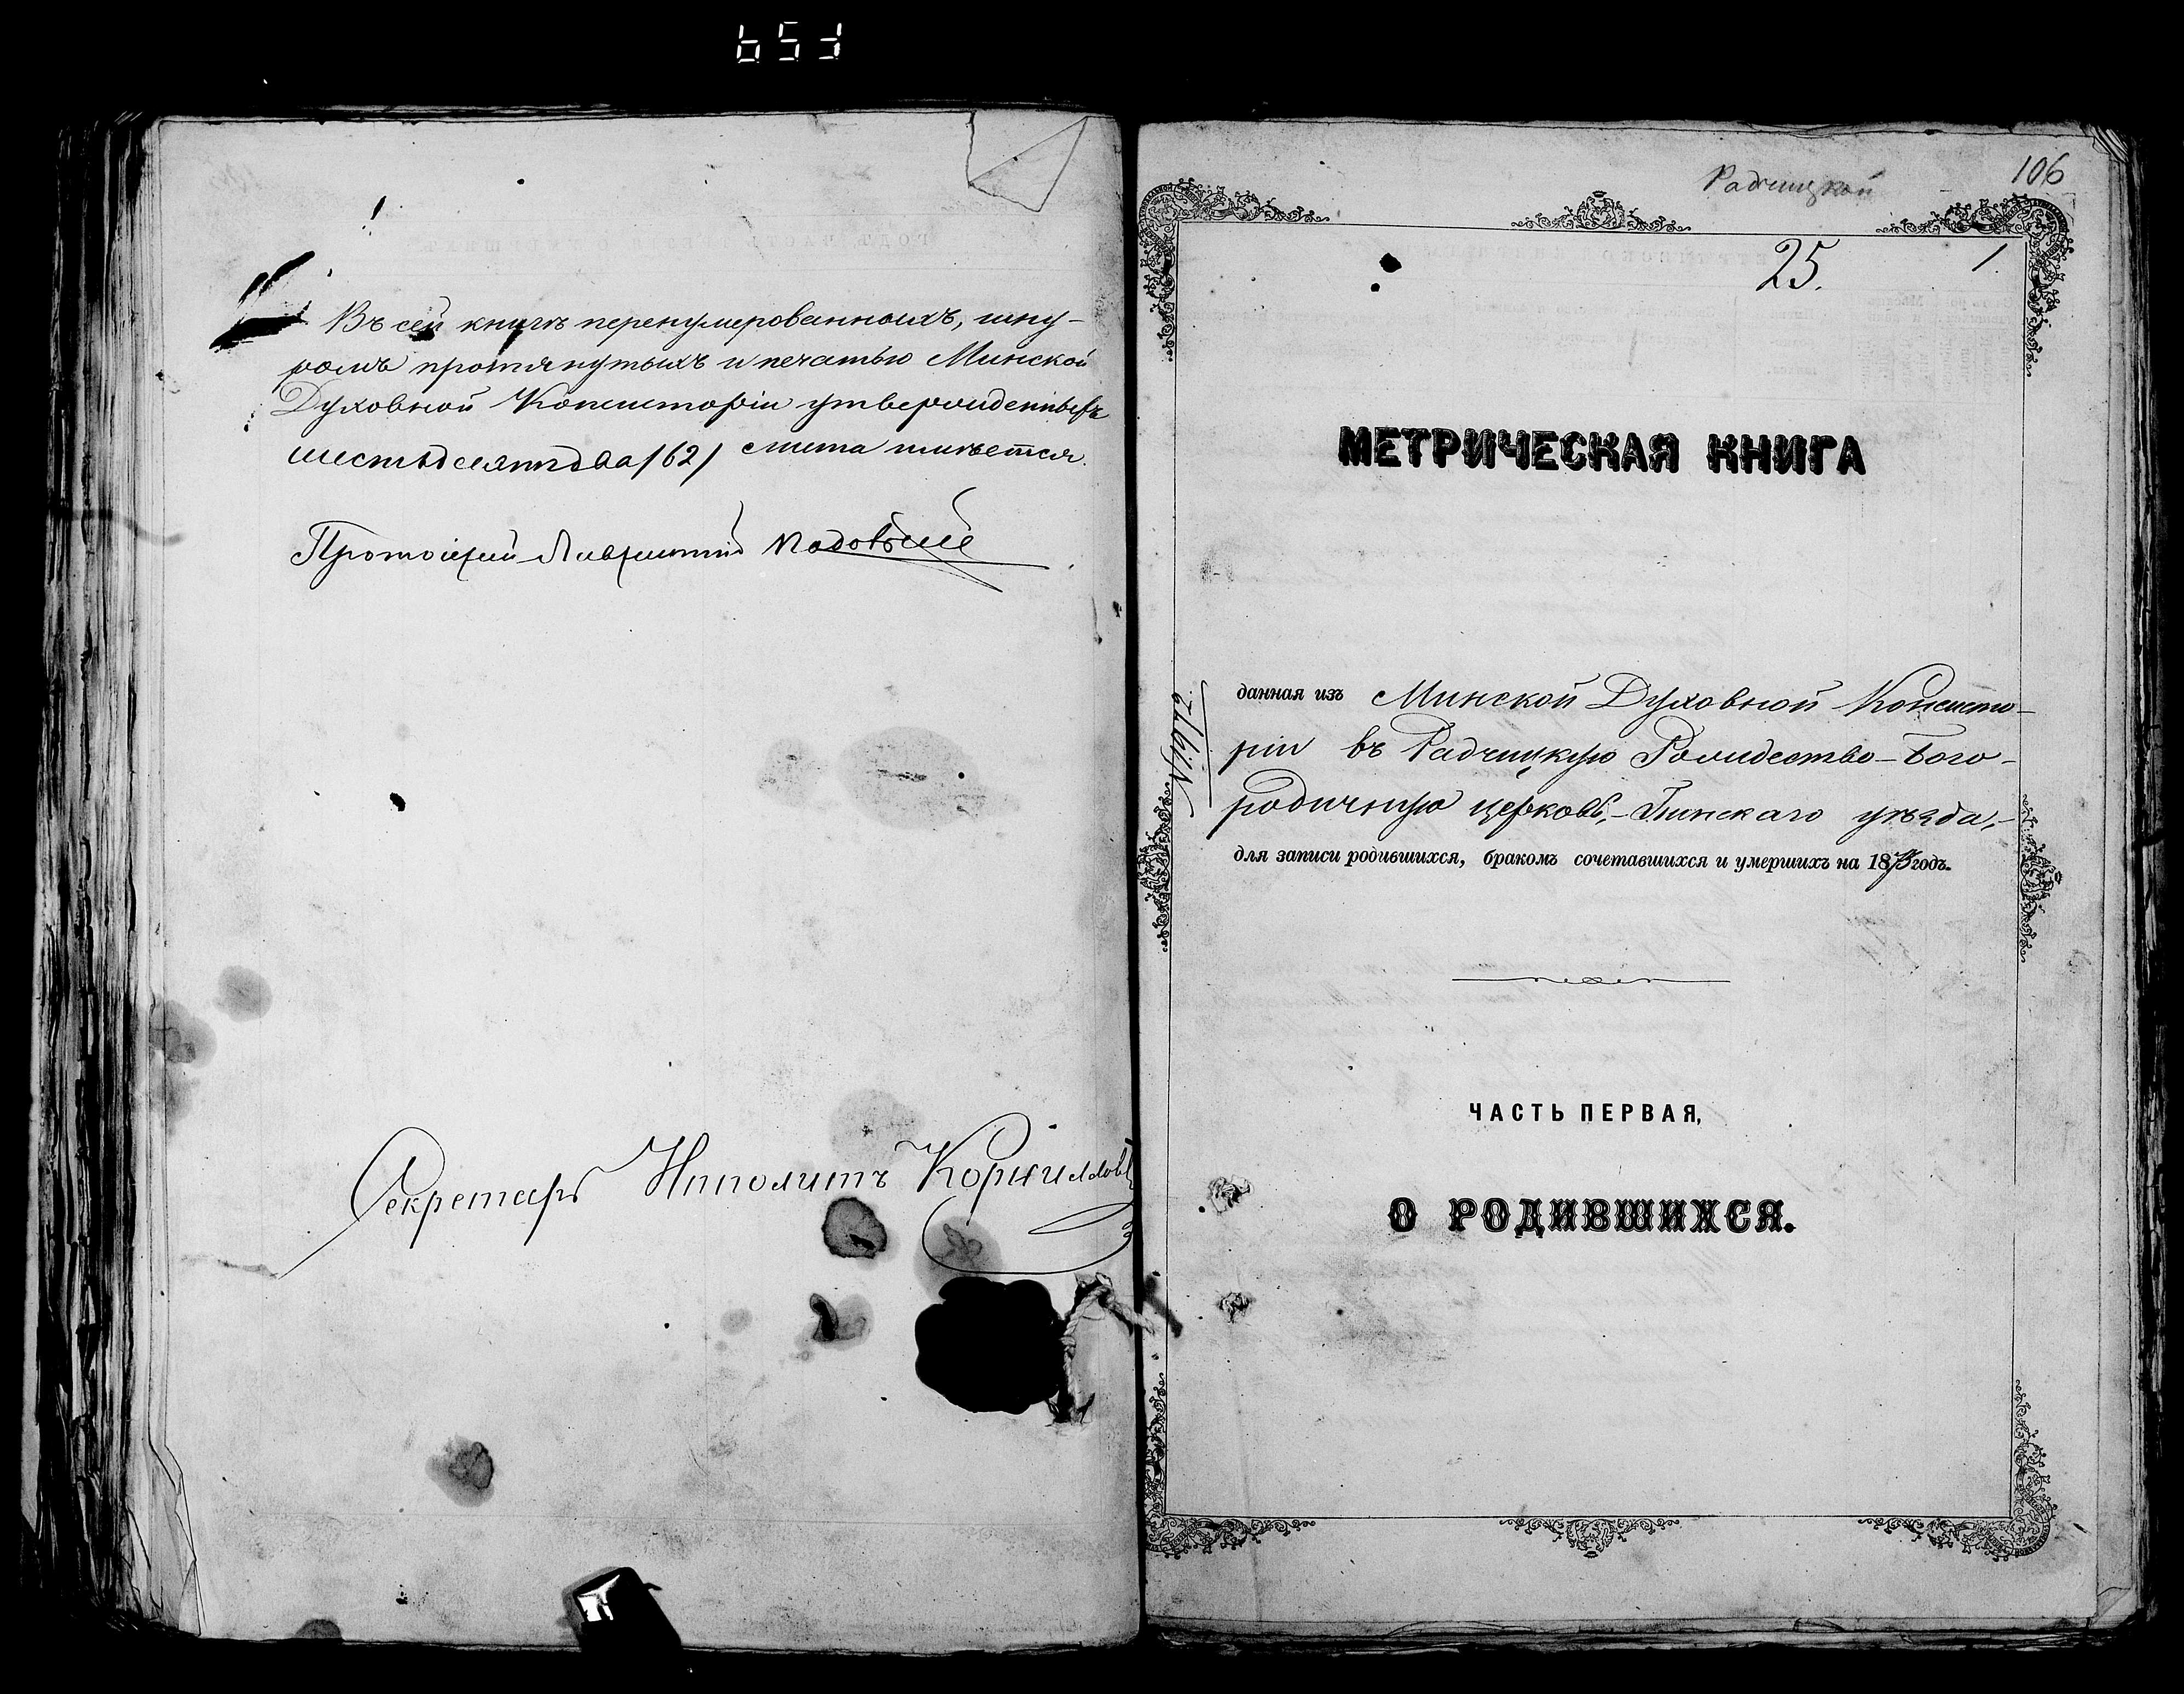 Въ сей книгѣ перенумерованныхъ, шну-
ромъ протянутыхъ и печатью Минской
Духовной Консисторіи утвержденныхъ
шестьдесятъ два /62/ листа имѣется.
Протоіерей
Секретарь Ипполитъ Корниловъ
Радчицкой
106
25.
1.
МЕТРИЧЕСКАЯ КНИГА
данная изъ Минской Духовной Консисто-
ріи въ Радчицкую Рождество-Бого-
родичную церковь,- Пинскаго уѣзда,-
для записи родившихся, бракомъ сочетавшихся и умершихъ на 1873 годъ.
ЧАСТЬ ПЕРВАЯ,
О РОДИВШИХСЯ.